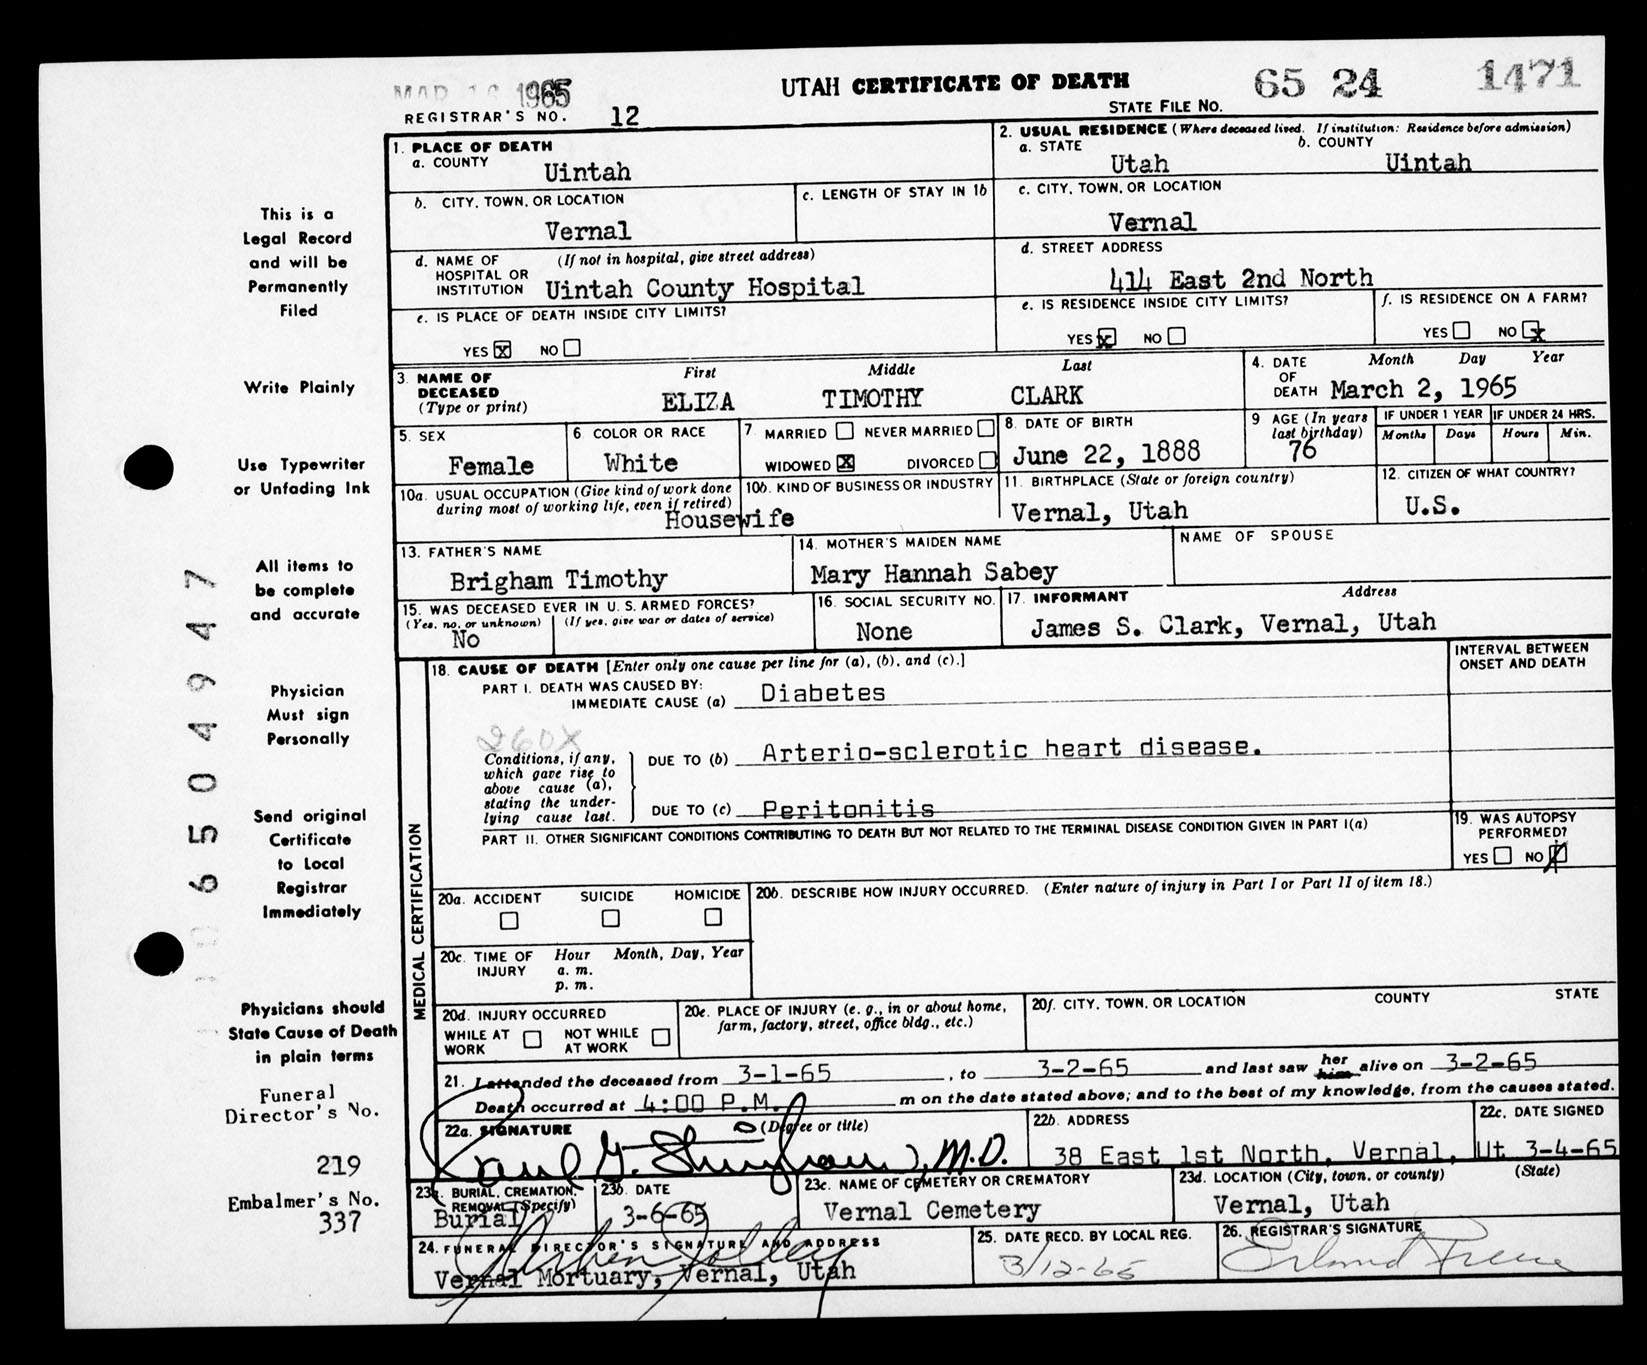 MAR 16 1965
UTAH CERTIFICATE OF DEATH
65 24 1471
STATE FILE NO.
REGISTRAR'S NO. 12
1. PLACE OF DEATH
a. COUNTY
Uintah
2. USUAL RESIDENCE (Where deceased lived. If institution: Residence before admission)
a. STATE b. COUNTY
Utah Uintah
b. CITY, TOWN, OR LOCATION
Vernal
c. LENGTH OF STAY IN 1b
c. CITY, TOWN, OR LOCATION
Vernal
d. NAME OF (If not in hospital, give street address)
HOSPITAL OR
INSTITUTION Uintah County Hospital
d. STREET ADDRESS
414 East 2nd North
e. IS PLACE OF DEATH INSIDE CITY LIMITS?
YES x NO
e. IS RESIDENCE INSIDE CITY LIMITS?
YES x NO
f. IS RESIDENCE ON A FARM?
YES NO x
3. NAME OF First Middle Last
DECEASED
(Type or print) ELIZA TIMOTHY CLARK
4. DATE Month Day Year
OF
DEATH March 2, 1965
5. SEX
Female
6. COLOR OR RACE
White
7. MARRIED NEVER MARRIED
WIDOWED x DIVORCED
8. DATE OF BIRTH
June 22, 1888
9 AGE (In years
last birthday)
76
IF UNDER 1 YEAR IF UNDER 24 HRS.
Months Days Hours Min.
10a. USUAL OCCUPATION (Give kind of work done
during most of working life, even if retired)
Housewife
10b. KIND OF BUSINESS OR INDUSTRY
11. BIRTHPLACE (State or foreign country)
Vernal, Utah
12. CITIZEN OF WHAT COUNTRY?
U.S.
13. FATHER'S NAME
Brigham Timothy
14. MOTHER'S MAIDEN NAME
Mary Hannah Sabey
NAME OF SPOUSE
15. WAS DECEASED EVER IN U.S. ARMED FORCES?
(Yes, no, or unknown) (If yes, give war or dates of service)
No
16. SOCIAL SECURITY NO.
None
17. INFORMANT Address
James S. Clark, Vernal, Utah
18. CAUSE OF DEATH [Enter only one cause per line for (a), (b), and (c).]
INTERVAL BETWEEN
ONSET AND DEATH
PART I. DEATH WAS CAUSED BY:
IMMEDIATE CAUSE (a) Diabetes
260X
Conditions, if any,
which gave rise to
above cause (a),
stating the under-
lying cause last.
DUE TO (b) Arterio-sclerotic heart disease.
DUE TO (c) Peritonitis
PART II. OTHER SIGNIFICANT CONDITIONS CONTRIBUTING TO DEATH BUT NOT RELATED TO THE TERMINAL DISEASE CONDITION GIVEN IN PART I(a)
19. WAS AUTOPSY
PERFORMED?
YES NO
MEDICAL CERTIFICATION
20a. ACCIDENT SUICIDE HOMICIDE
20b. DESCRIBE HOW INJURY OCCURRED. (Enter nature of injury in Part I or Part II of item 18.)
20c. TIME OF Hour Month, Day, Year
INJURY a. m.
p. m.
20d. INJURY OCCURRED
WHILE AT NOT WHILE
WORK AT WORK
20e. PLACE OF INJURY (e. g., in or about home,
farm, factory, street, office bldg., etc.)
20f. CITY, TOWN, OR LOCATION COUNTY STATE
21. I attended the deceased from 3-1-65, to 3-2-65 and last saw her him alive on 3-2-65
Death occurred at 4:00 P.M. m on the date stated above; and to the best of my knowledge, from the causes stated.
22a. SIGNATURE (Degree or title)
Paul G. Stringham, M.D.
22b. ADDRESS
38 East 1st North, Vernal, Ut
22c. DATE SIGNED
3-4-65
23a. BURIAL, CREMATION,
REMOVAL (Specify)
Burial
23b. DATE
3-6-65
23c. NAME OF CEMETERY OR CREMATORY
Vernal Cemetery
23d. LOCATION (City, town, or county) (State)
Vernal, Utah
24. FUNERAL DIRECTOR'S SIGNATURE AND ADDRESS
Vernal Mortuary, Vernal, Utah
25. DATE RECD. BY LOCAL REG.
3/12-65
26. REGISTRAR'S SIGNATURE
This is a
Legal Record
and will be
Permanently
Filed
Write Plainly
Use Typewriter
or Unfading Ink
All items to
be complete
and accurate
Physician
Must sign
Personally
Send original
Certificate
to Local
Registrar
Immediately
Physicians should
State Cause of Death
in plain terms
Funeral
Director's No.
219
Embalmer's No.
337
0 6 5 0 4 9 4 7